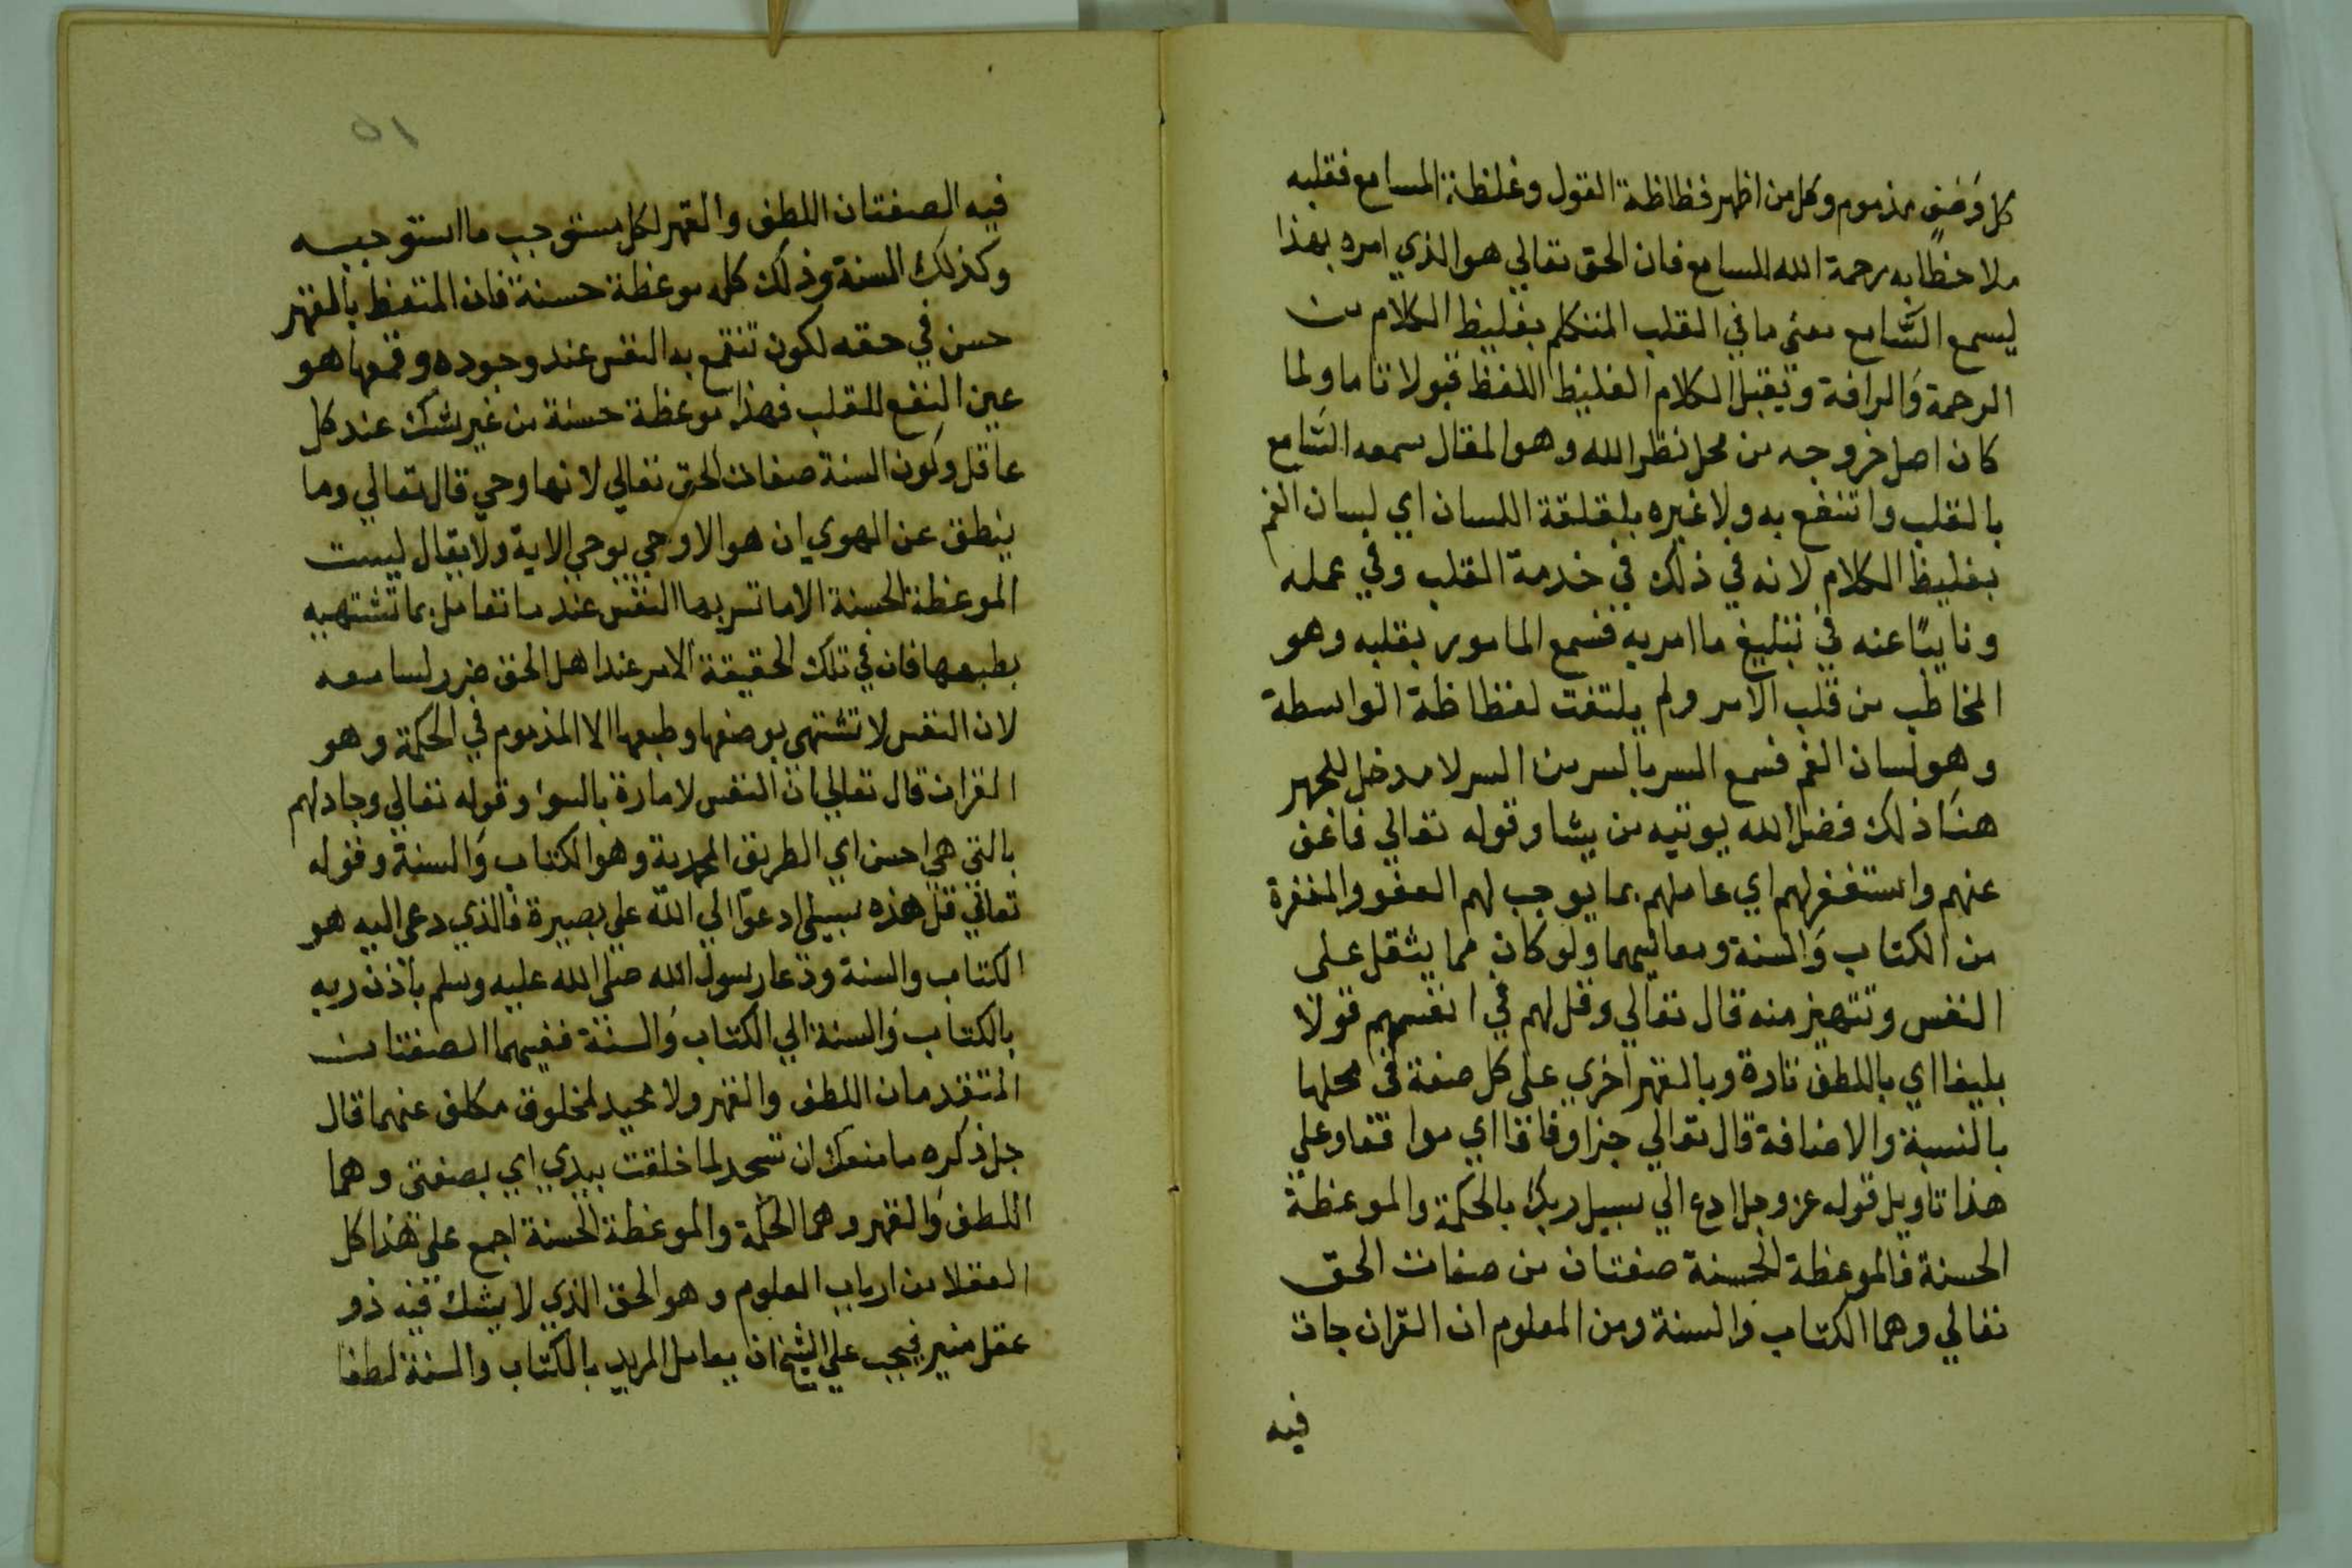 كل وَصْفٍ مذموم وكل من اظهر فظاظة القول وغلظة المسامع فقلبه
ملاحظًا به رحمة الله للسامع فان الحق تعالي هو الذي امره بهذا
ليسمع السَّامع معنى ما في القلب المتكلم بغليظ الكلام من
الرحمة وَالرافة ويقبل الكلام الغليظ اللفظ قبولا تاما ولما
كان اصل خروجه من محل نظر الله وهو المقال سمعه السَّامع
بالقلب وانتفع به ولا غيره بلقلقة اللسان اي لسان الفم
بغليظ الكلام لانه في ذلك في خدمة القلب وفي عمله
ونايبًا عنه في تبليغ ما امر به فسمع المامور بقلبه وهو
المخاطب من قلب الامر ولم يلتفت لفظاظة الواسطة
وهو لسان الفم فسمع السر بالسر من السر لا مدخل للجهر
هنَا ذلك فضل الله يوتيه من يشا وقوله تعالي فاعف
عنهم واستغفر لهم اي عاملهم بما يوجب لهم العفو والمغفرة
من الكتاب وَالسنة ومعانيهما ولو كان مما يثقل على
النفس وتتهيز منه قال تعالي وقل لهم في انفسهم قولا
بليغا اي باللطف تارة وبالقهر اخري على كل صفة في محلها
بالنسبة والاضافة قال تعالي جزا وفاقا اي موافقا وعلي
هذا تاويل قوله عز وجل ادع الي سبيل ربك بالحكمة والموعظة
الحسنة فالموعظة الحسنة صفتان من صفات الحق
تعالي وهما الكتاب والسنة ومن المعلوم ان القران جات
فيه
٥١
فيه الصفتان اللطف والقهر لكل مستوجب ما استوجبه
وكذلك السنة وذلك كله موعظة حسنة فان المتعظ بالقهر
حسن في حقه لكون تنقمع به النفس عند وجوده وقمعها هو
عين النفع للقلب فهذا موعظة حسنة من غير شك عند كل
عاقل وكون السنة صفات الحق تعالي لانها وحي قال تعالي وما
ينطق عن الهوي ان هو الا وحي يوحي الاية ولا يقال ليست
الموعظة الحسنة الا ما تسر بها النفس عند ما تعامل بما تشتهيه
بطبعها فان في تلك الحقيقة الامر عند اهل الحق ضرر لسامعه
لان النفس لا تشتهي بوصفها وطبعها الا المذموم في الحكمة وهو
القران قال تعالي ان النفس لامارة بالسوء وقوله تعالي وجادلهم
بالتي هي احسن اي الطريق المحمدية وهو الكتاب وَالسنة وقوله
تعالي قل هذه سبيلي ادعوا الي الله علي بصيرة فالذي دعي اليه هو
الكتاب والسنة ودعا رسول الله صلي الله عليه وسلم باذن ربه
بالكتاب وَالسنة الي الكتاب وَالسنة ففيهما الصفتان
المتقدمان اللطف والقهر ولا محيد لمخلوق مكلف عنهما قال
جل ذكره ما منعك ان تسجد لما خلقت بيدي اي بصفتي وهما
اللطف وَالقهر وهما الحكمة والموعظة الحسنة اجمع علي هذا كل
العقلا من ارباب العلوم وهو الحق الذي لا يشك فيه ذو
عقل منير فيجب علي الشيخ ان يعامل المريد بالكتاب والسنة لطفا